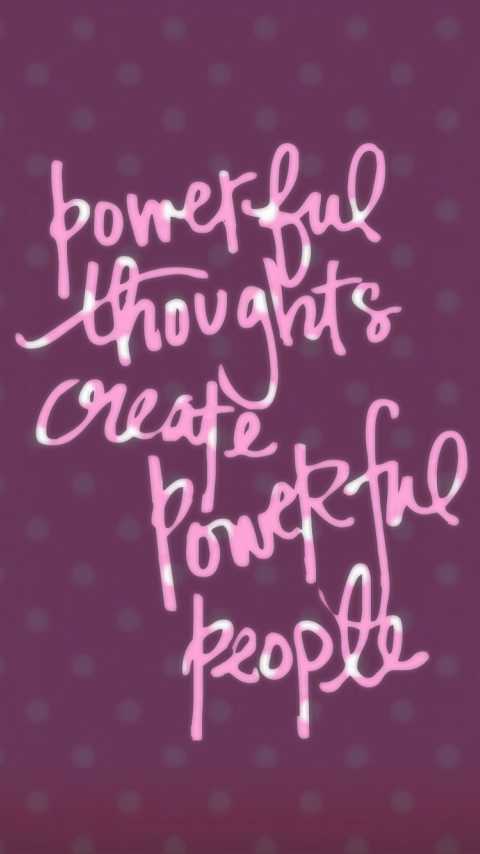 powerful
thoughts
create
powerful
people